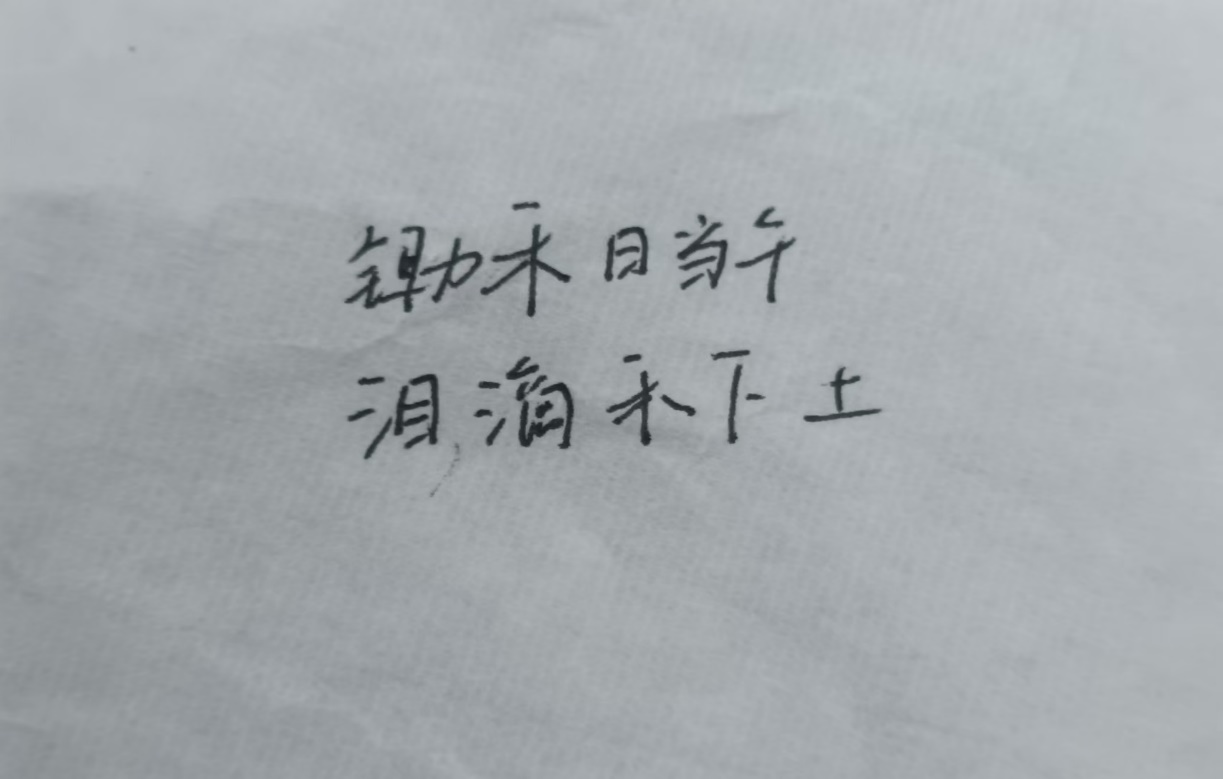 锄禾日当午
泪滴禾下土